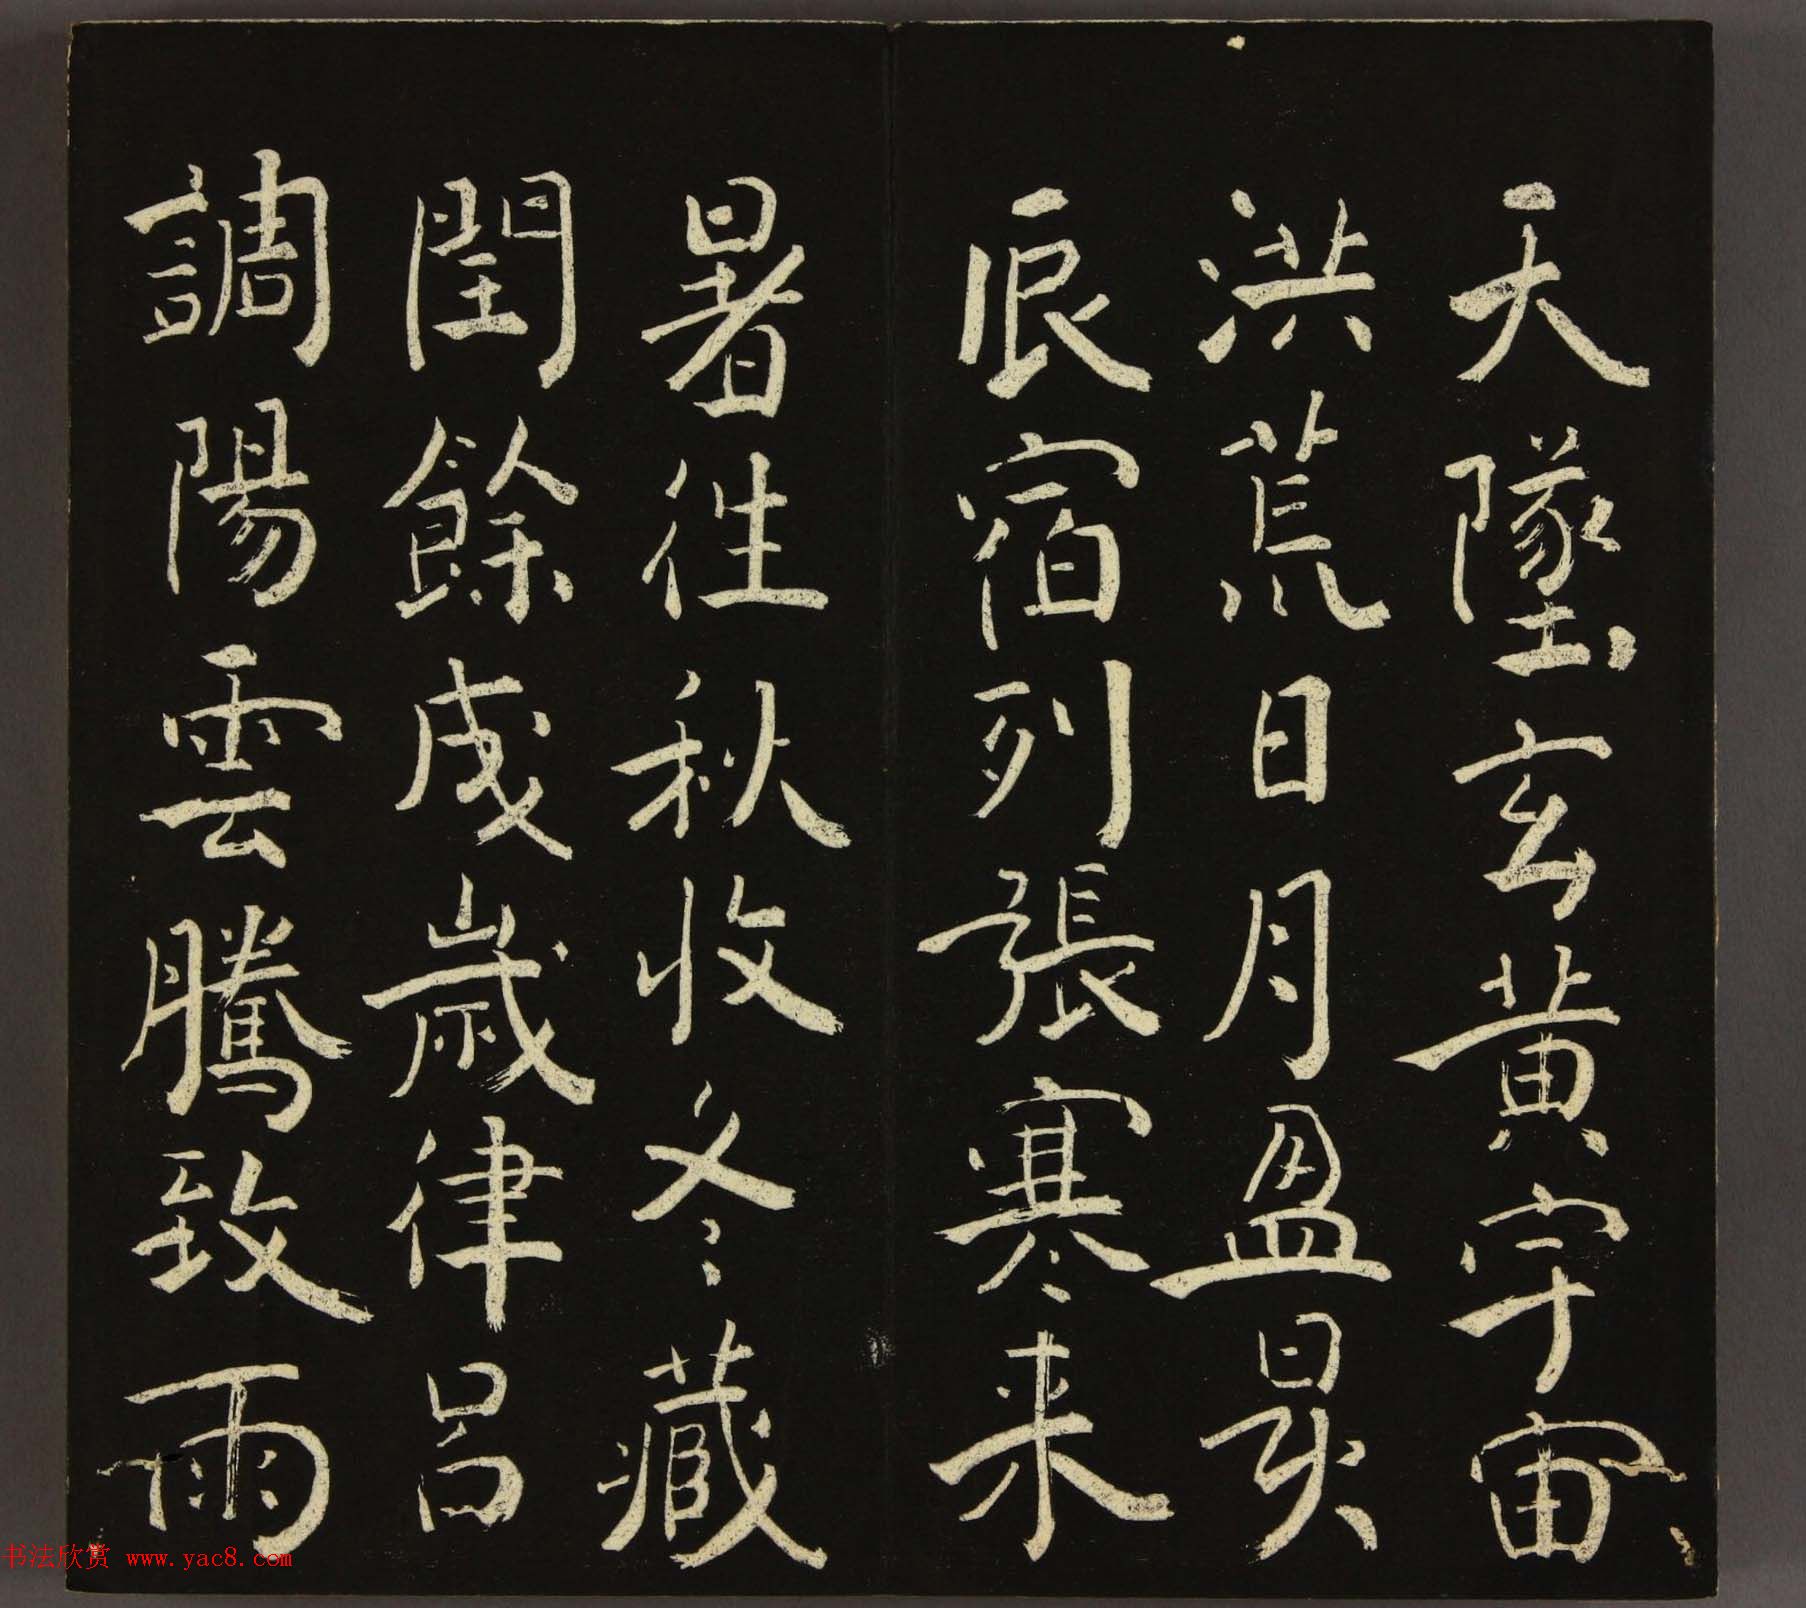 天墬玄黃宇宙
洪荒日月盈昃
辰宿列張寒来
暑往秋收冬藏
閏餘成歲律吕
調陽雲騰致雨
书法欣赏 www.yac8.com